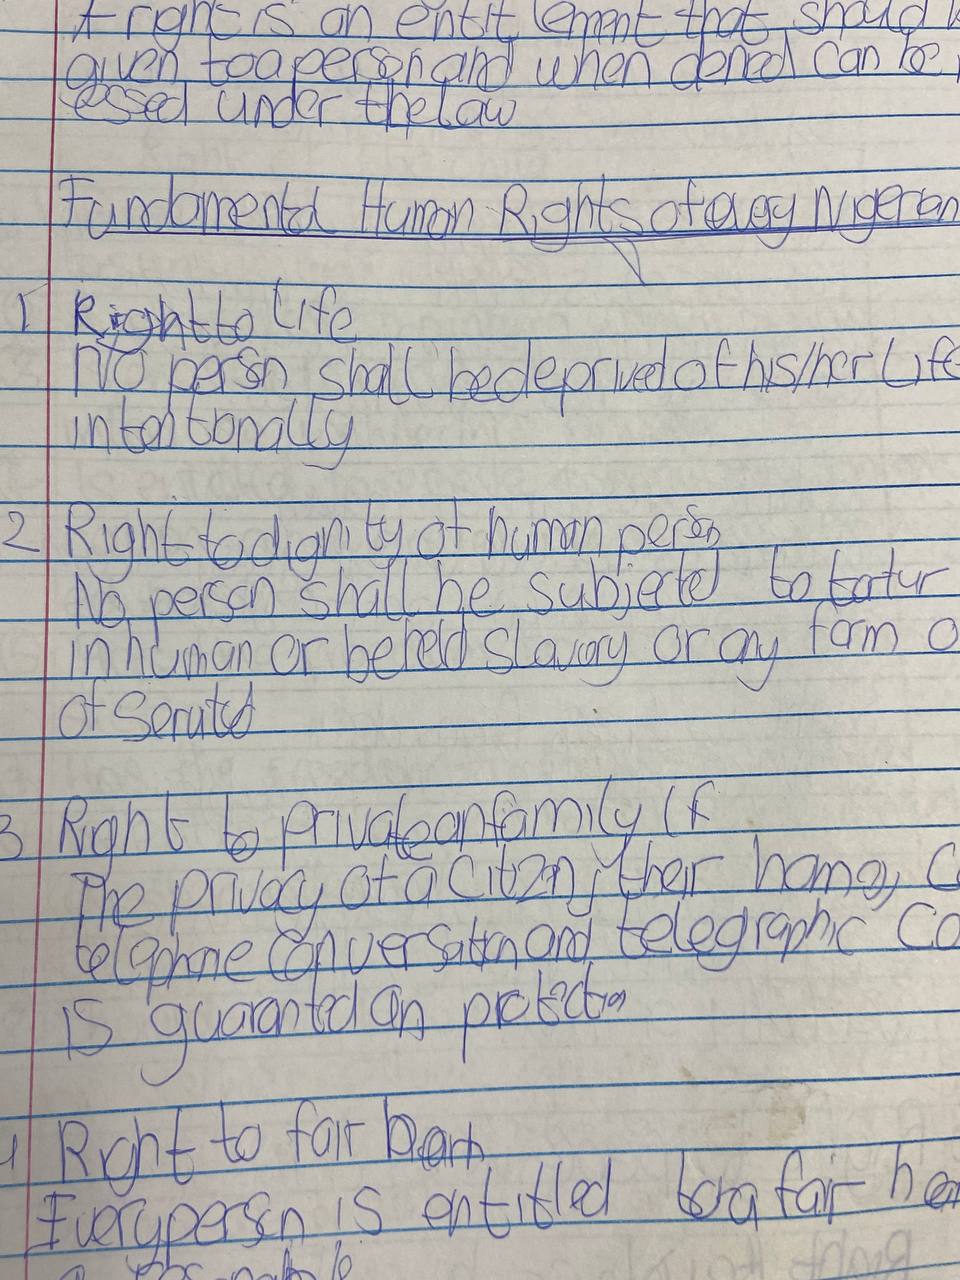 A right is an entitlement that should
given to a person and when denied can be
essed under the law
Fundamental Human Rights of every Nigerian
1 Right to Life
No person shall be deprived of his/her Life
intentionally
2 Right to dignity of human person
No person shall be subjected to tortur
inhuman or be held slavery or any form o
of
3 Right to private an family Lif
The privacy of a Citizen, their home, C
telephone Conversation and telegraphic Co
is guaranted an protection
4 Right to fair
Every person is entitled to a fair hea